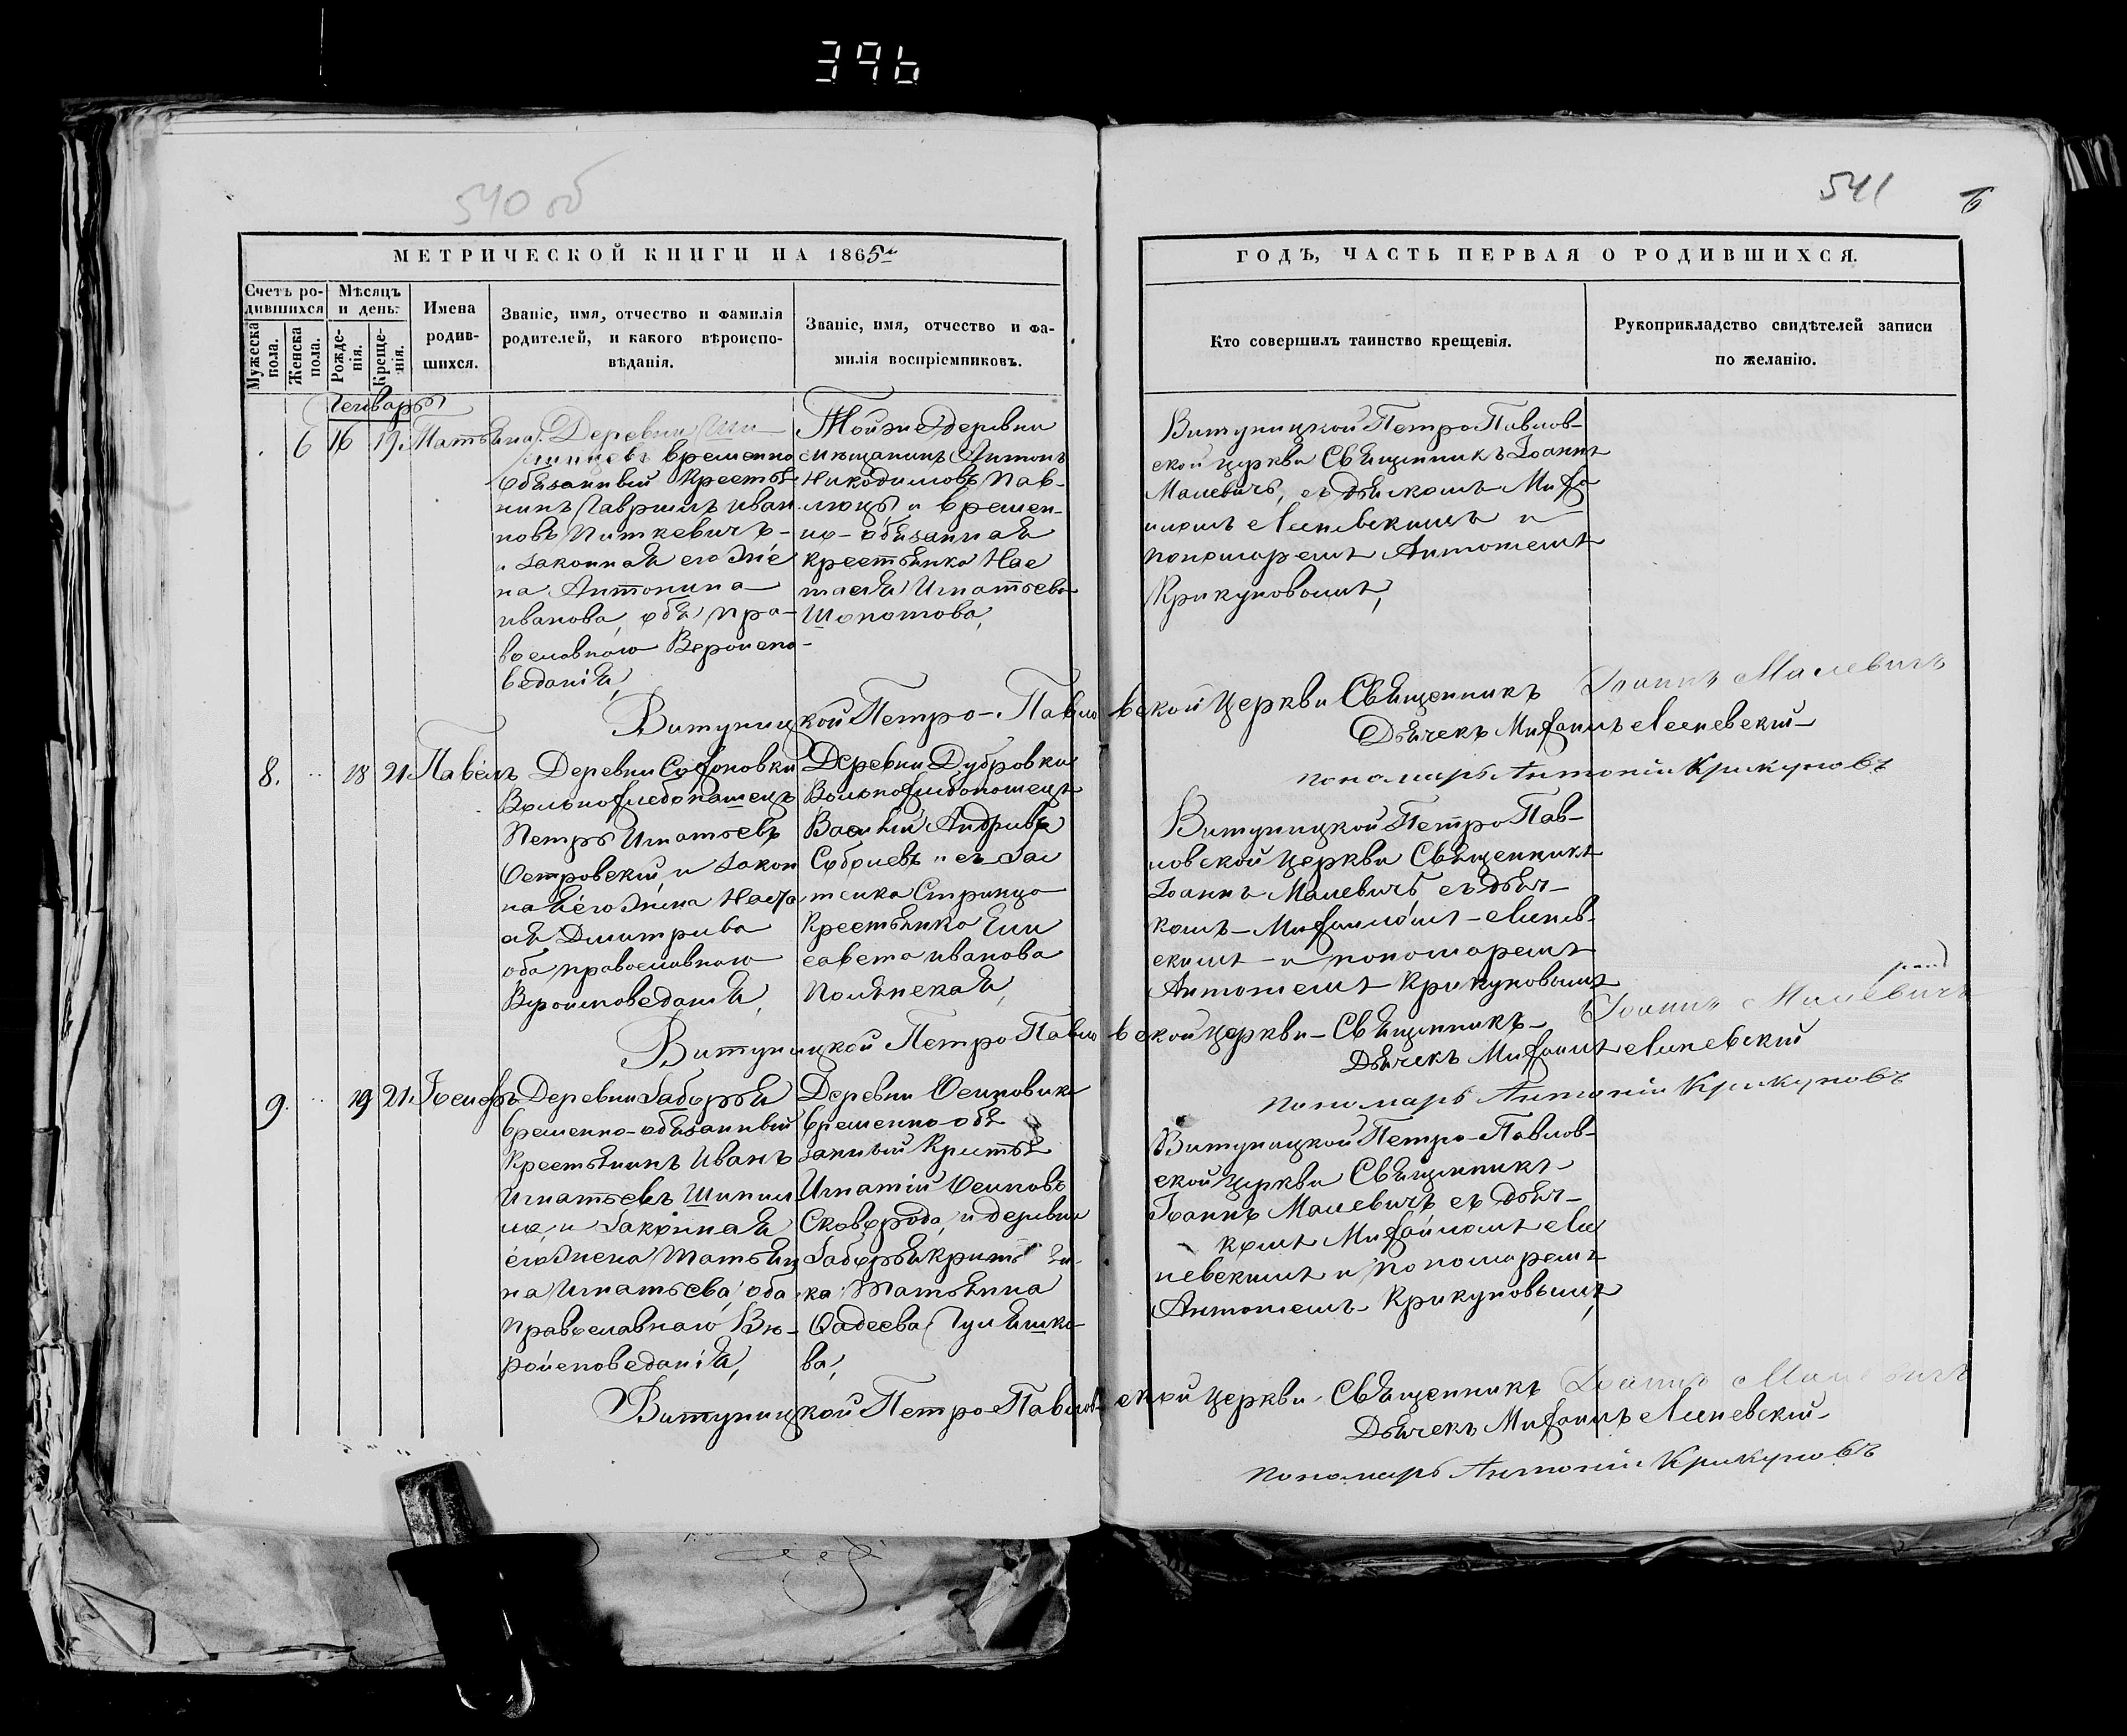 396
540 об
541
6
МЕТРИЧЕСКОЙ КНИГИ НА 1865й
ГОДЪ, ЧАСТЬ ПЕРВАЯ О РОДИВШИХСЯ.
Счетъ ро-
дившихся
Мужеска
пола.
Женска
пола.
Мѣсяцъ
и день:
Рожде-
нія.
Креще-
нія.
Имена
родив-
шихся.
Званіе, имя, отчество и фамилія
родителей, и какого вѣроиспо-
вѣданія.
Званіе, имя, отчество и фа-
милія воспріемниковъ.
Кто совершилъ таинство крещенія.
Рукоприкладство свидѣтелей записи
по желанію.
Генварь
6 16 19. Татьяна.
Деревни
временно
обязанный Крестья
нинъ Гаврiилъ Иван
новъ Питкевичъ-
и законная его же
на Антонина
иванова, оба пра-
вославного Вероиспо-
ведания,
Той же деревни
мещанинъ Антонъ
Никодимовъ Пав-
люцъ и времен-
но-обязанная
крестьянка Нас
тасья Игнатьева
Шопотова,
Витуницкой Петро Павлов-
ской церкви Священникъ Іоаннъ
Малевичъ, съ дьячкомъ Миха
иломъ Лисневскимъ и
пономаремъ Антониемъ
Крикуновымъ,
Витуницкой Петро-Павло вской церкви Священникъ Іоаннъ Малевичъ
Дьячекъ Михаилъ Лисневский-
пономарь Антоній Крикуновъ
8. 18 21. Павелъ
Деревни Сафоновки
Вольнохлебопашецъ
Петръ Игнатьевъ
Островский, и закон
ная его жена Наста
ся Дмитриева
оба православного
Вероисповедания,
Деревни Дубровки
Вольнохлебопашецъ
Василий Андреевъ
Крестьянка Ели
савета иванова
Полянская,
Витуницкой Петро Пав-
ловской церкви Священникъ
Іоаннъ Малевичъ, съ дьяч-
комъ-Михаиломъ-Лиснев-
скимъ-и пономаремъ
Антониемъ Крикуновымъ
Витуницкой Петро Павло вской церкви-Священникъ- Іоаннъ Малевичъ
Дьячекъ Михаилъ Лисневский
пономарь Антоній Крикуновъ
9. 19 21. Іосифъ
Деревни Заборья
временно-обязанный
Крестьянинъ Иванъ
Игнатьевъ Шипил
ло, и законная
его жена Татьян
на Игнатьева, оба
Православнаго Вѣ-
роисповеданія,
Деревни Осиновики
временно обя
занный Крестья
Игнатій Осиповъ
Сковорода, и деревни
Заборья крестьян-
ка Татьянна
Фадеева Гуляшко-
ва,
Витуницкой Петро-Павлов-
ской церкви Священникъ-
Іоаннъ Малевичъ, съ дьяч-
комъ Михайломъ Лис
невскимъ и пономаремъ
Антониемъ Крикуновымъ,
Витуницкой Петро-Павлов- ской церкви Священникъ Іоаннъ Малевичъ
Дьячекъ Михаилъ Лисневский-
пономарь Антоній Крикуновъ